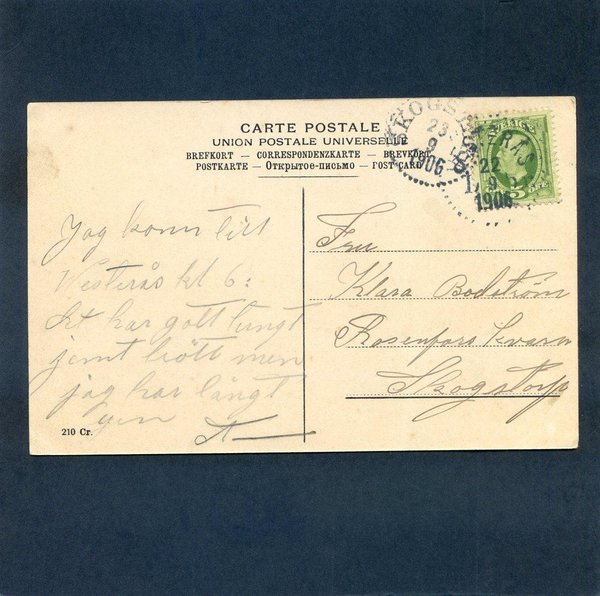 CARTE POSTALE
UNION POSTALE UNIVERSELLE
BREFKORT — CORRESPONDENZKARTE — BREVKORT
POSTKARTE — Открытое-письмо — POST-CARD
SKOGS
23
9
1906
SVERIGE
RÅS
22
9
1906
5
Jag kom till
Westerås kl 6:
har gott lungt
jemt men
jag har långt
igen
A
210 Cr.
Fru
Klara Bodström
Rosenfors kvarn
Skogstorp